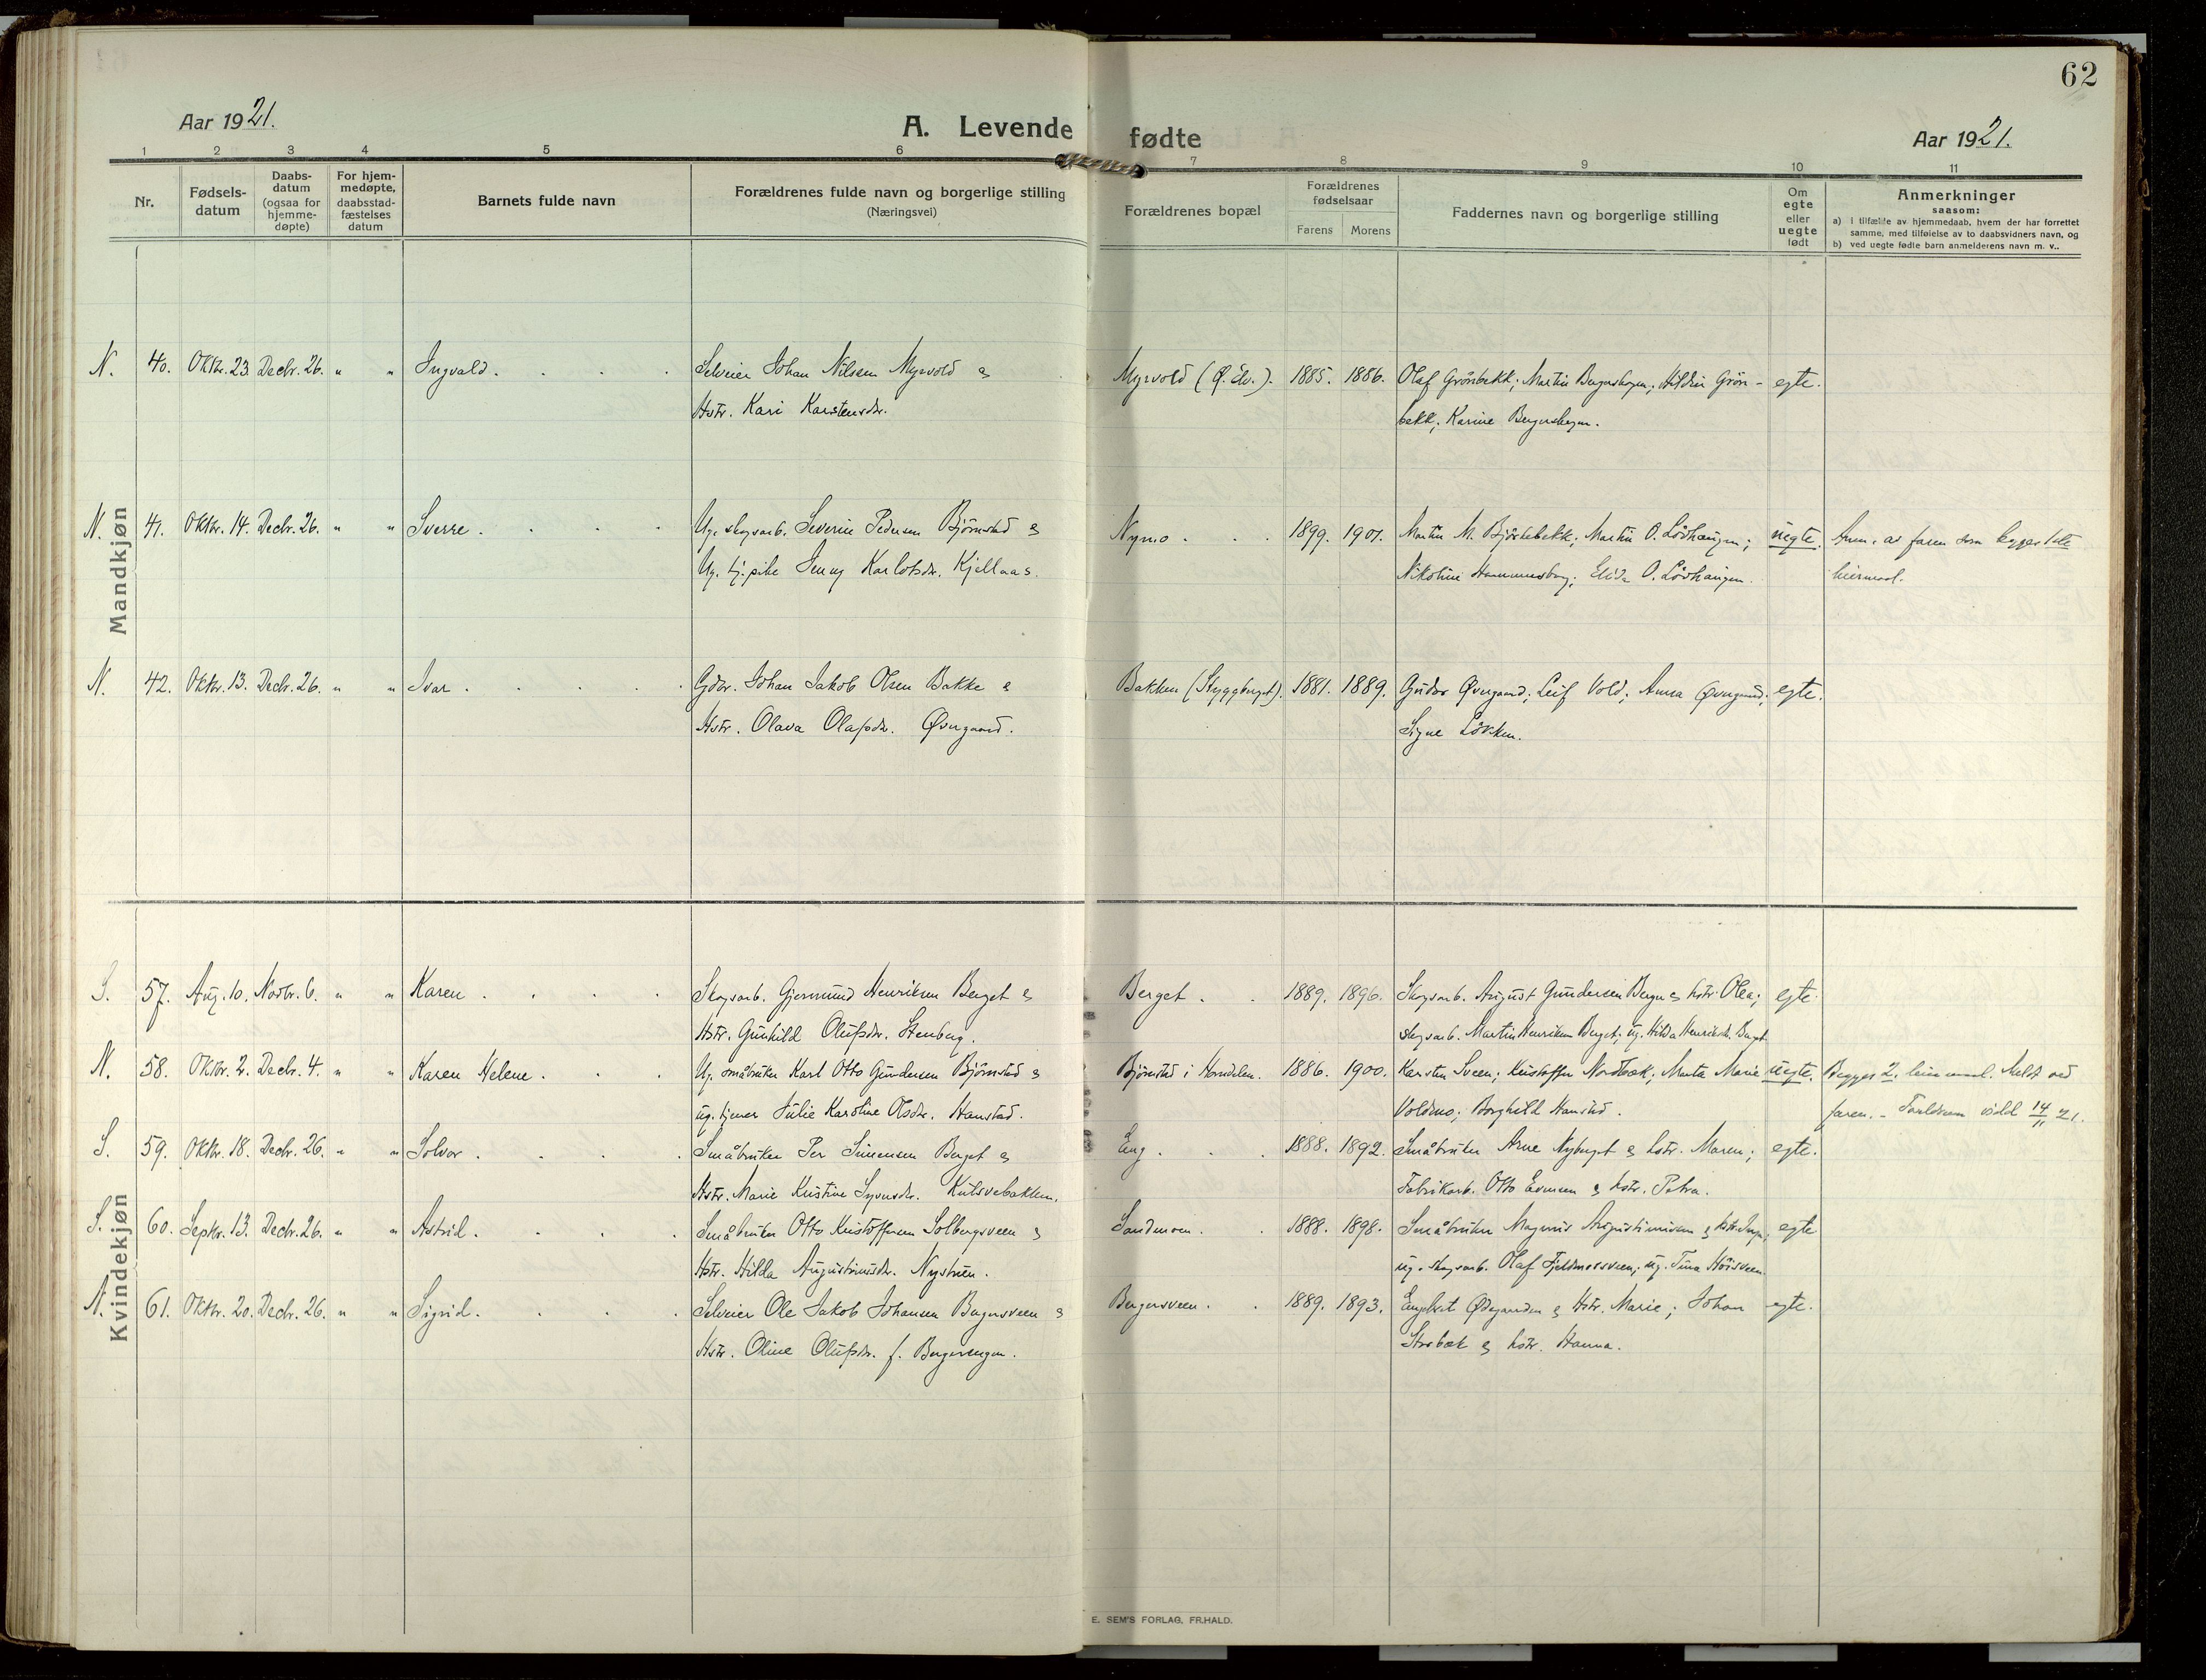 62
Aar 1921.
A. Levende fødte
Aar 1921.
1 2 3 4 5 6 7 8 9 10 11
Nr.
Fødsels-
datum
Daabs-
datum
(ogsaa for
hjemme-
døpte)
For hjem-
medøpte,
daabsstad-
fæstelses
datum
Barnets fulde navn
Forældrenes fulde navn og borgerlige stilling
(Næringsvei)
Forældrenes bopæl
Forældrenes
fødselsaar
Farens Morens
Faddernes navn og borgerlige stilling
Om
egte
eller
uegte
født
Anmerkninger
saasom:
a) i tilfælde av hjemmedaab, hvem der har forrettet
samme, med tilføielse av to daabsvidners navn, og
b) ved uegte fødte barn anmelderens navn m. v..
Mandkjøn
N. 40. Oktbr. 23. Decbr. 26. " " Ingvald. Selveier Johan Nilsen Myrvold & Myrvold (Ø. Elv.). 1885. 1886. Olaf Grönbekk; Martin Bergershagen; Hildur Grön- egte.
Hstr. Kari Karstensdr. bekk; Karine Bergershagen.
N. 41. Oktbr. 14. Decbr. 26. " " Sverre. Ug. skogsarb. Severin Pedersen Björnstad & Nymo. 1899. 1901. Martin M. Björkebekk; Martin O. Lövhaugen; uegte. Anm. av faren som begges 1ste
Ug. tj. pike Jenny Karlotsdr. Kjellaas. Nikoline Hammersborg; Elida O. Lövhaugen. leiermaal.
N. 42. Oktbr. 13. Decbr. 26. " " Ivar. Gdbr. Johan Jakob Olsen Bakke & Bakken (Skyggberget). 1881. 1889. Gudor Øvergaard; Leif Vold; Anna Øvergaard; egte.
Hstr. Olava Olafsdr. Øvergaard. Signe Lövken.
Kvindekjøn
S. 57. Aug. 10. Novbr. 6. " " Karen. Skogsarb. Gjermund Henriksen Berget & Berget. 1889. 1896. Skogsarb. August Gundersen Berger & hstr. Olea; egte.
Hstr. Gunhild Olufsdr. Stenberg. skogsarb. Martin Henriksen Berget; ug. Hilda Henriksdr. Berget.
N. 58. Oktbr. 2. Decbr. 4. " " Karen Helene. Ug. småbruker Karl Otto Gundersen Björnstad & Björnstad i Horndalen. 1886. 1900. Karsten Sveen; Kristoffer Nordbæk; Marta Marie uegte. Begges 2. leiermaal. Meldt ved
ug. tjener Julie Karoline Olsdr. Hanstad. Voldmo; Borghild Hanstad. faren. - 14/11 21.
S. 59. Oktbr. 18. Decbr. 26. " " Solvor. Småbruker Per Simensen Berget & Eng. 1888. 1892. Småbruker Arne Nyberget & hstr. Maren; egte.
Hstr. Marie Kristine Syversdr. Kulsvebakken. Fabrikarb. Otto Evensen & hstr. Petra.
S. 60. Septbr. 13. Decbr. 26. " " Astrid. Småbruker Otto Kristoffersen Solbergsveen & Sandmoen. 1888. 1898. Småbruker Magnus Augustinusen & hstr. Inga; egte
Hstr. Hilda Augustinusdr. Nystuen. ug. skogsarb. Olaf Fjeldmosveen; ug. Tina Höisveen.
N. 61. Oktbr. 20. Decbr. 26. " " Sigrid. Selveier Ole Jakob Johansen Bergersveen & Bergersveen. 1889. 1893. Engebret Ødegaarden & Hstr. Marie; Johan egte.
Hstr. Oline Olufsdr. f. Bergerengen. & hstr. Hanna.
E. SEM'S FORLAG, FR.HALD.